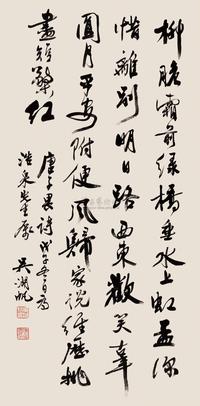 柳脆霜前綠橋垂水上虹盃深
惜離別明日路西東歡笑幸
圓月平安附便風歸家說經歷挑
盡短檠紅
唐子畏詩戊子冬日為
先生屬 吳湖帆